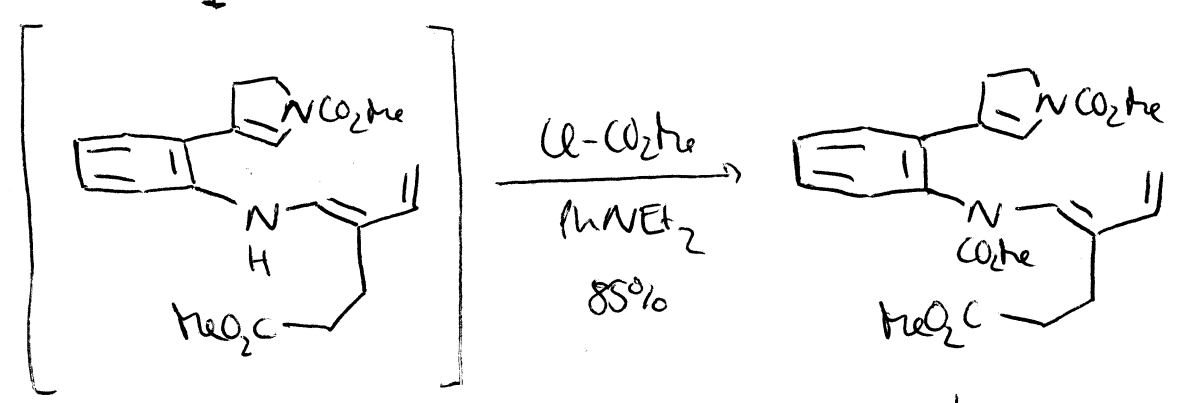 NCO₂Me
N
H
MeO₂C
Cl-CO₂Me
PhNEt₂
85%
NCO₂Me
N
CO₂Me
MeO₂C